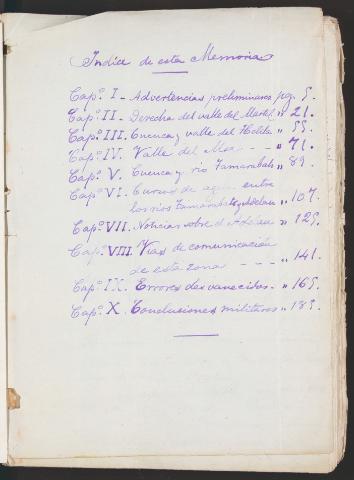 Indice de esta Memoria
Cap.º I - Advertencias preliminares pg. 5.
Cap.º II - Derecha del valle del Martil " 21.
Cap.º III. Cuenca y valle del " 55.
Cap.º IV. Valle del - - " 71.
Cap.º V. Cuenca y rio Tamarabets " 89.
Cap.º VI. Cursos de agua entre
los rios Tamarabets y Adelau " 107.
Cap.º VII. Noticias sobre el Adelau " 129.
Cap.º VIII. Vias de comunicación
de esta zona - - - " 141.
Cap.º IX. Errores desvanecidos " 165.
Cap.º X. Conclusiones militares " 183.